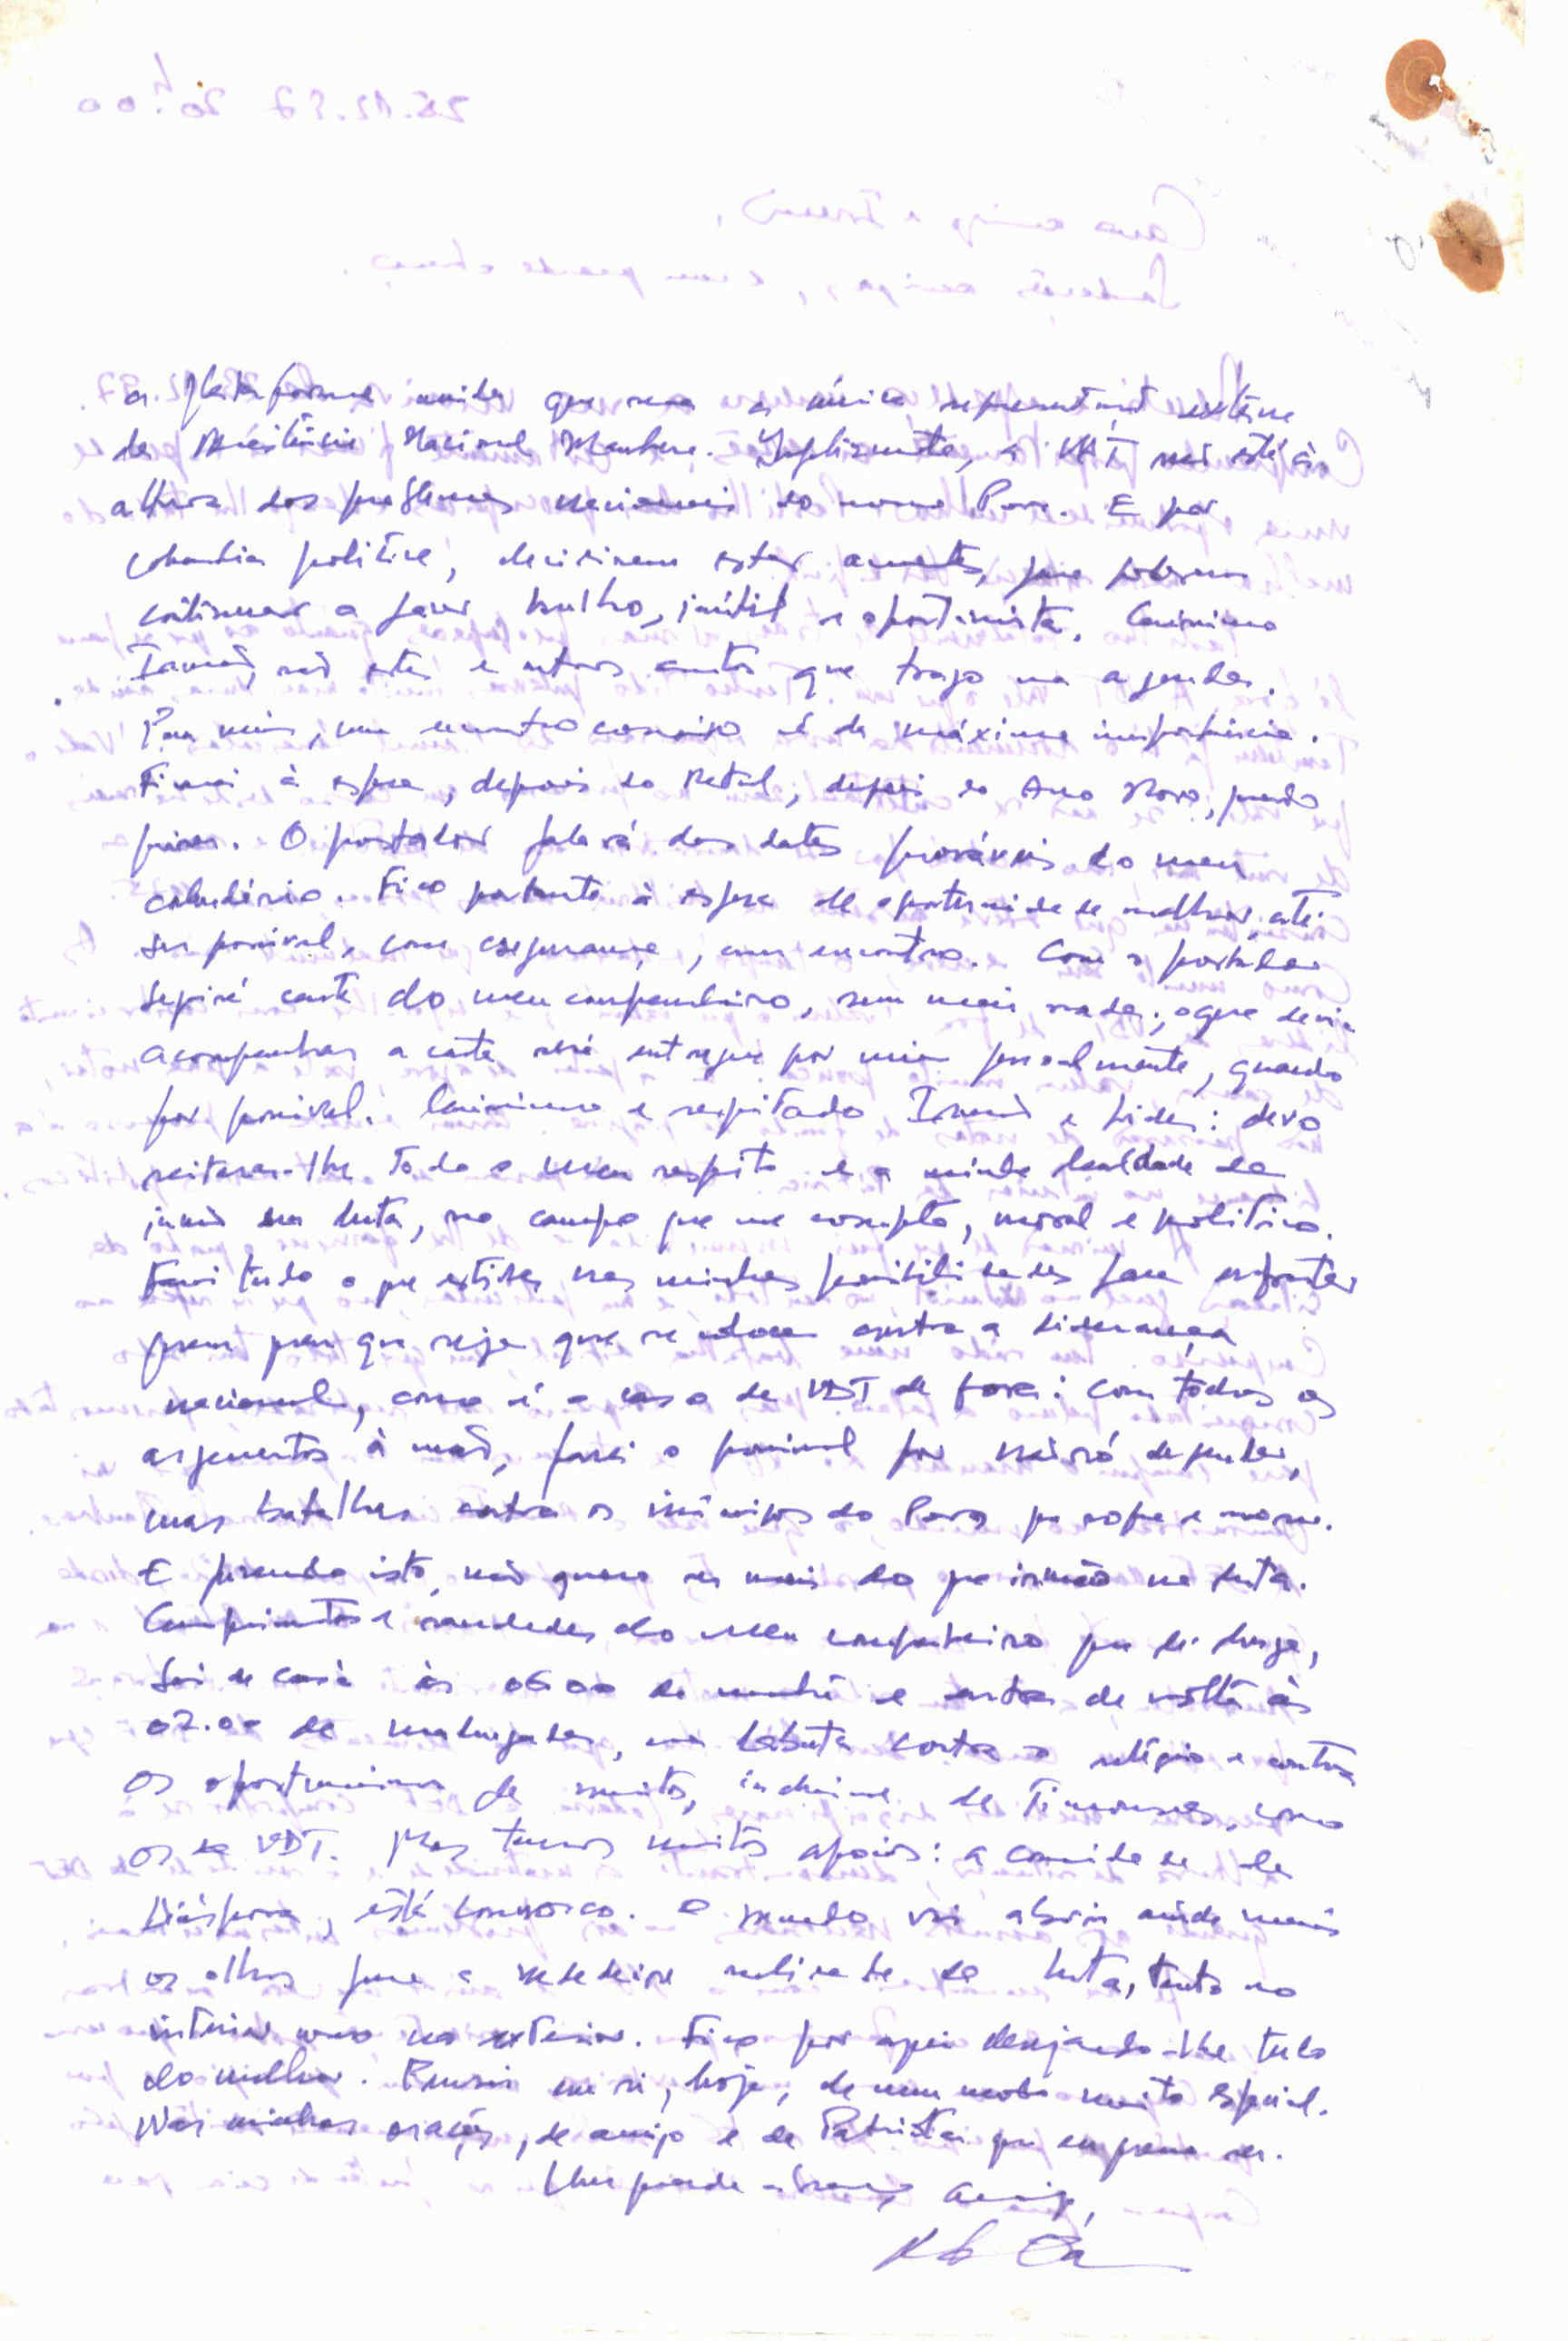 a plataforma unida que seria a única representante externa
da Resistência Nacional Maubere. Infelizmente, a UDT não está à
altura dos problemas nacionais do nosso Povo. E por
cobardia política, decidiram estar ausentes, para poderem
continuar a fazer barulho, inútil e oportunista. Caríssimo
Irmão, são estes e outros assuntos que trago na agenda.
Para mim, um encontro consigo é de máxima importância.
Ficarei à espera, depois do Natal, depois do Ano Novo, quando
puder. O portador falará das datas prováveis do meu
calendário. Fico portanto à espera de oportunidade melhor, até
ser possível, com segurança, um encontro. Com o portador
seguirá carta do meu companheiro, sem mais nada; o que devia
acompanhar a carta será entregue por mim pessoalmente, quando
for possível. Caríssimo e respeitado Irmão e Líder: devo
reiterar-lhe todo o meu respeito e a minha lealdade de
irmão na luta, no campo que me compete, moral e político.
Farei tudo o que estiver nas minhas possibilidades para enfrentar
quem quer que seja que se coloca contra a liderança
nacional, como é o caso da UDT de fora: com todos os
argumentos à mão, farei o possível por não só defender,
mas batalhar contra os inimigos do Povo que sofre e morre.
E fazendo isto, não quero ser mais do que irmão na luta.
Cumprimentos e saudades do meu companheiro que
Sai de casa às 06.00 da manhã e entra de volta às
02.00 da madrugada, na labuta contra o relógio e contra
os oportunismos de muitos, inclusive de Timorenses, como
os da UDT. Mas temos muitos apoios: a comunidade da
Diáspora, está connosco. O mundo vai abrir ainda mais
os olhos para a verdadeira realidade da luta, tanto no
interior como no exterior. Fico por aqui desejando-lhe tudo
do melhor. Pensei em si, hoje, de um modo muito especial.
Nas minhas orações, de amigo e de Patriota que eu quero ser.
Um grande abraço amigo,